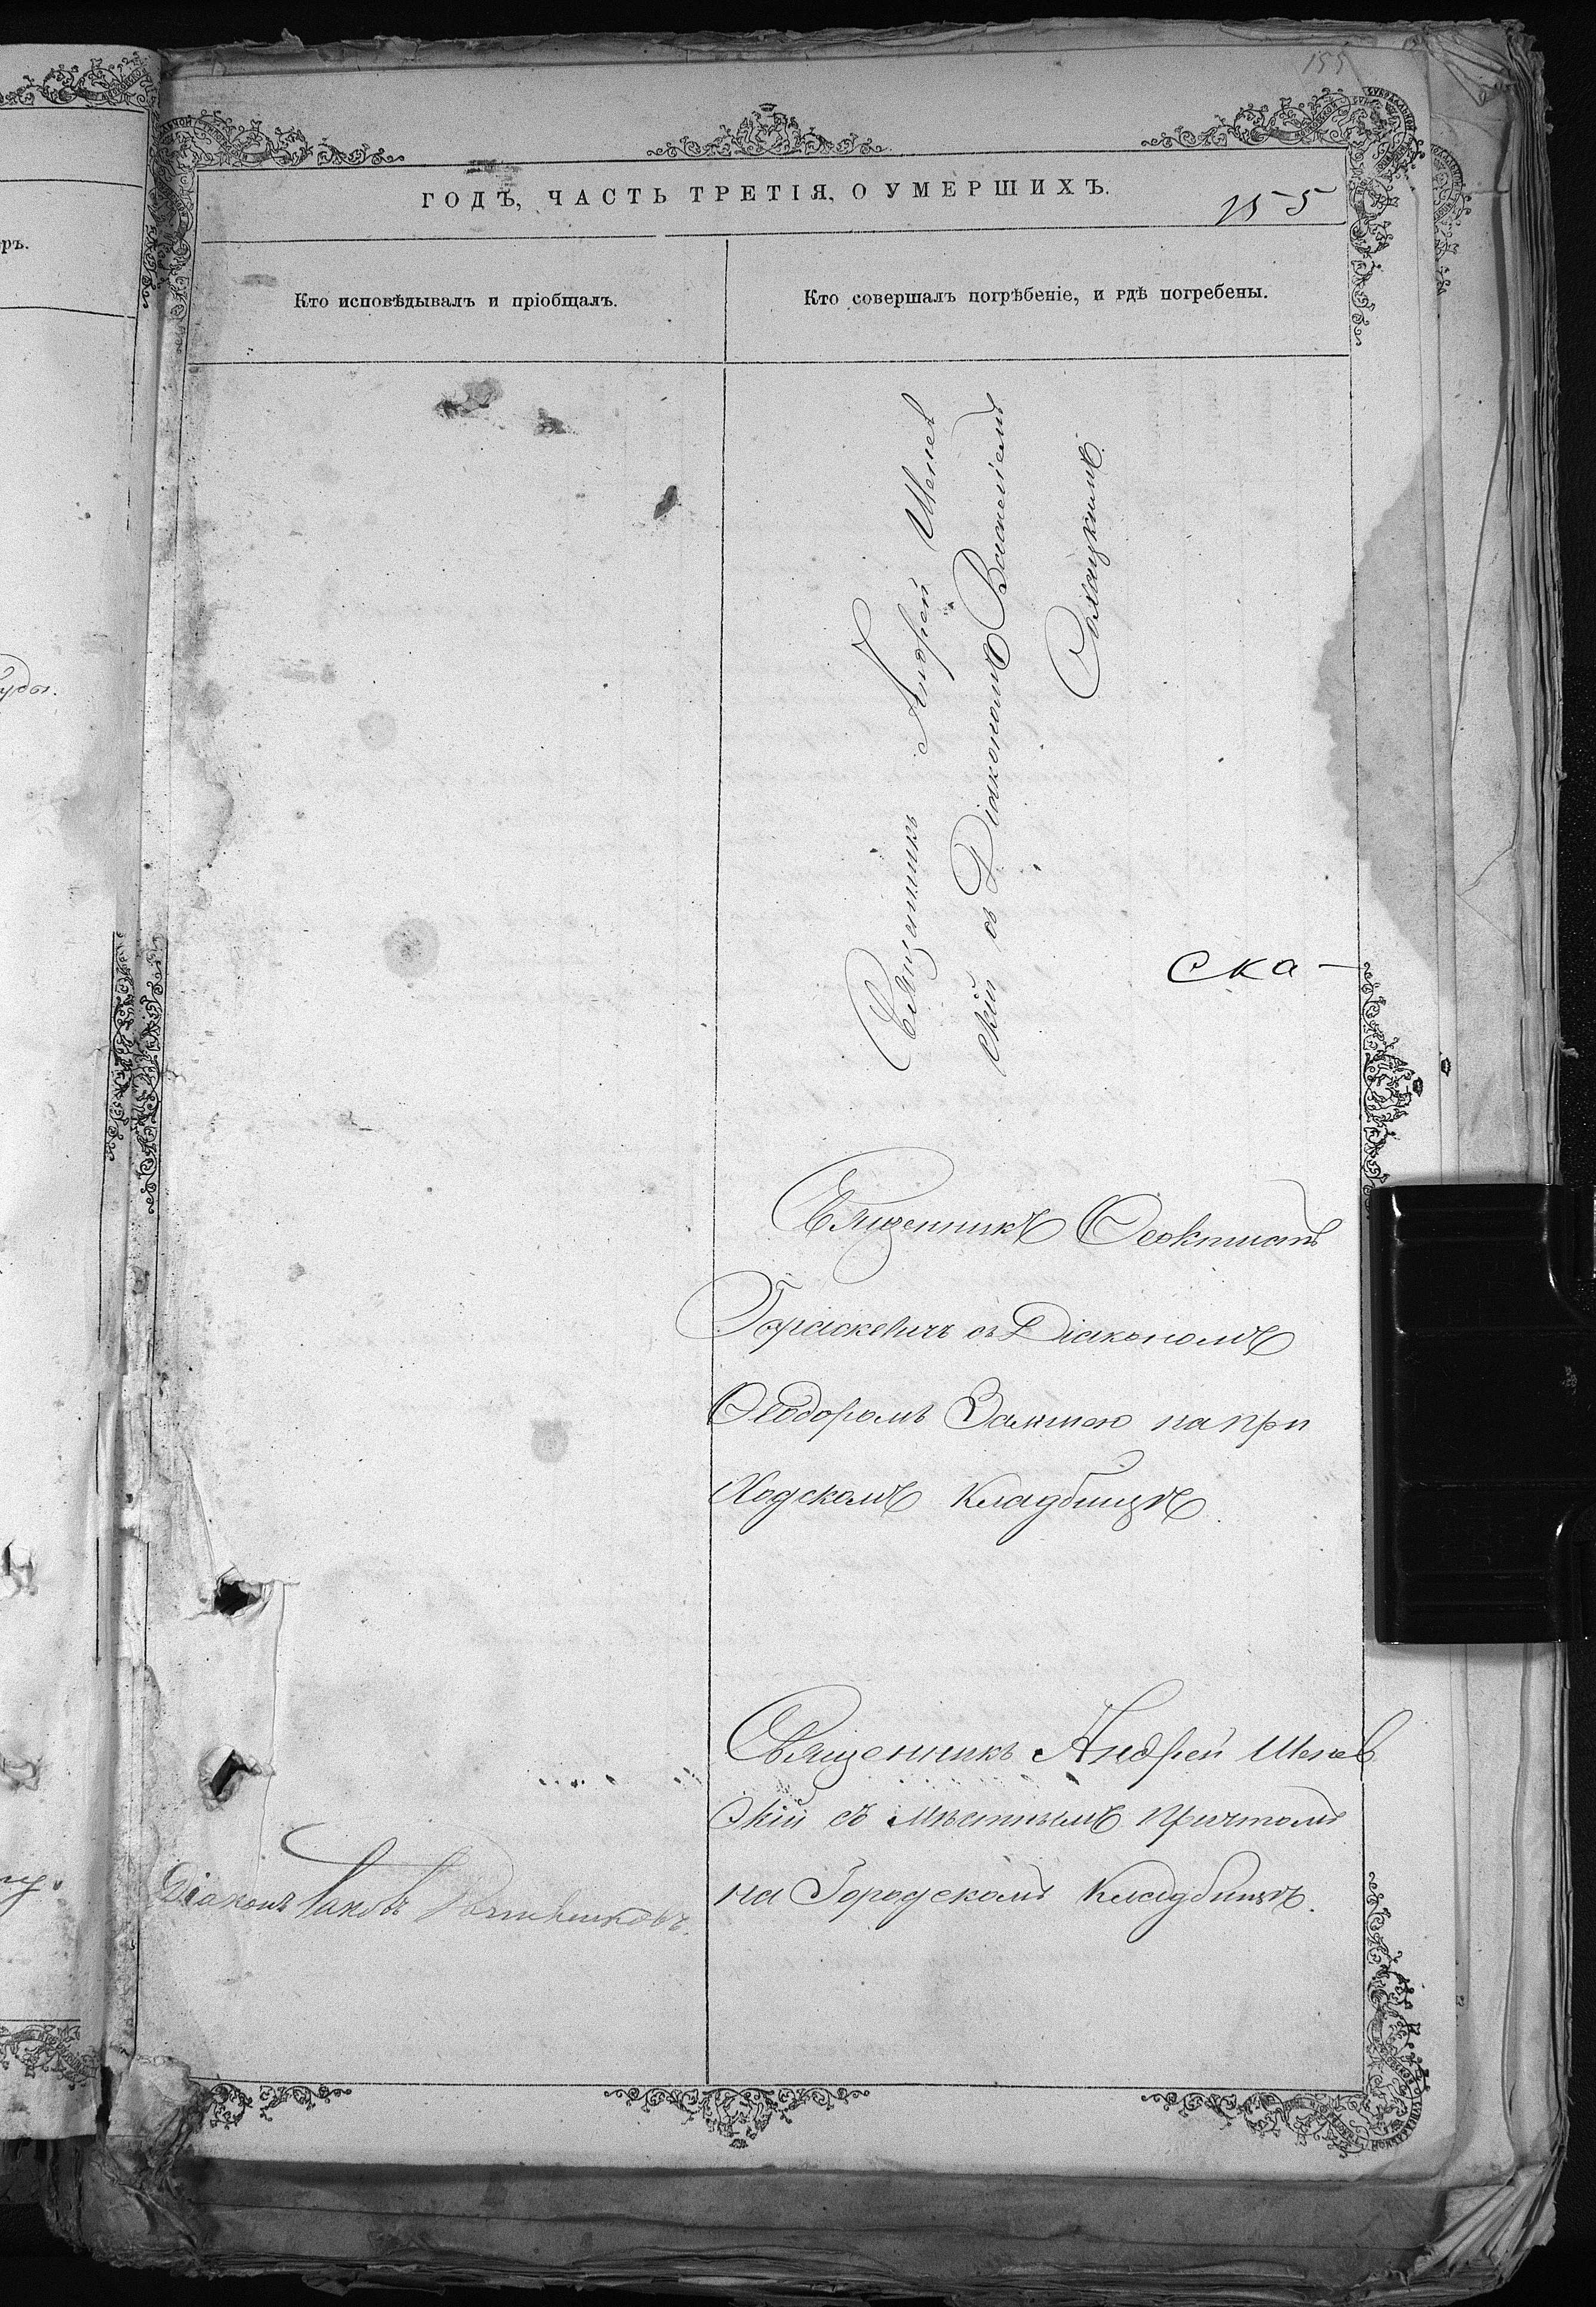 155
ГОДЪ, ЧАСТЬ ТРЕТІЯ, О УМЕРШИХЪ.
155
Кто исповѣдывалъ и пріобщалъ.
Кто совершалъ погрѣбеніе, и гдѣ погребены.
Священникъ Андрей Шепев
скій съ Діакономъ Василіемъ
ска-
Священникъ Ѳеоктистъ
Гораскевичъ съ Діакономъ
Ѳеодоромъ на при
ходскомъ кладбищѣ.
Священникъ Андрей Шепев
скій съ мѣстнымъ причтомъ
на Городскомъ кладбищѣ.
Діаконъ Іаковъ